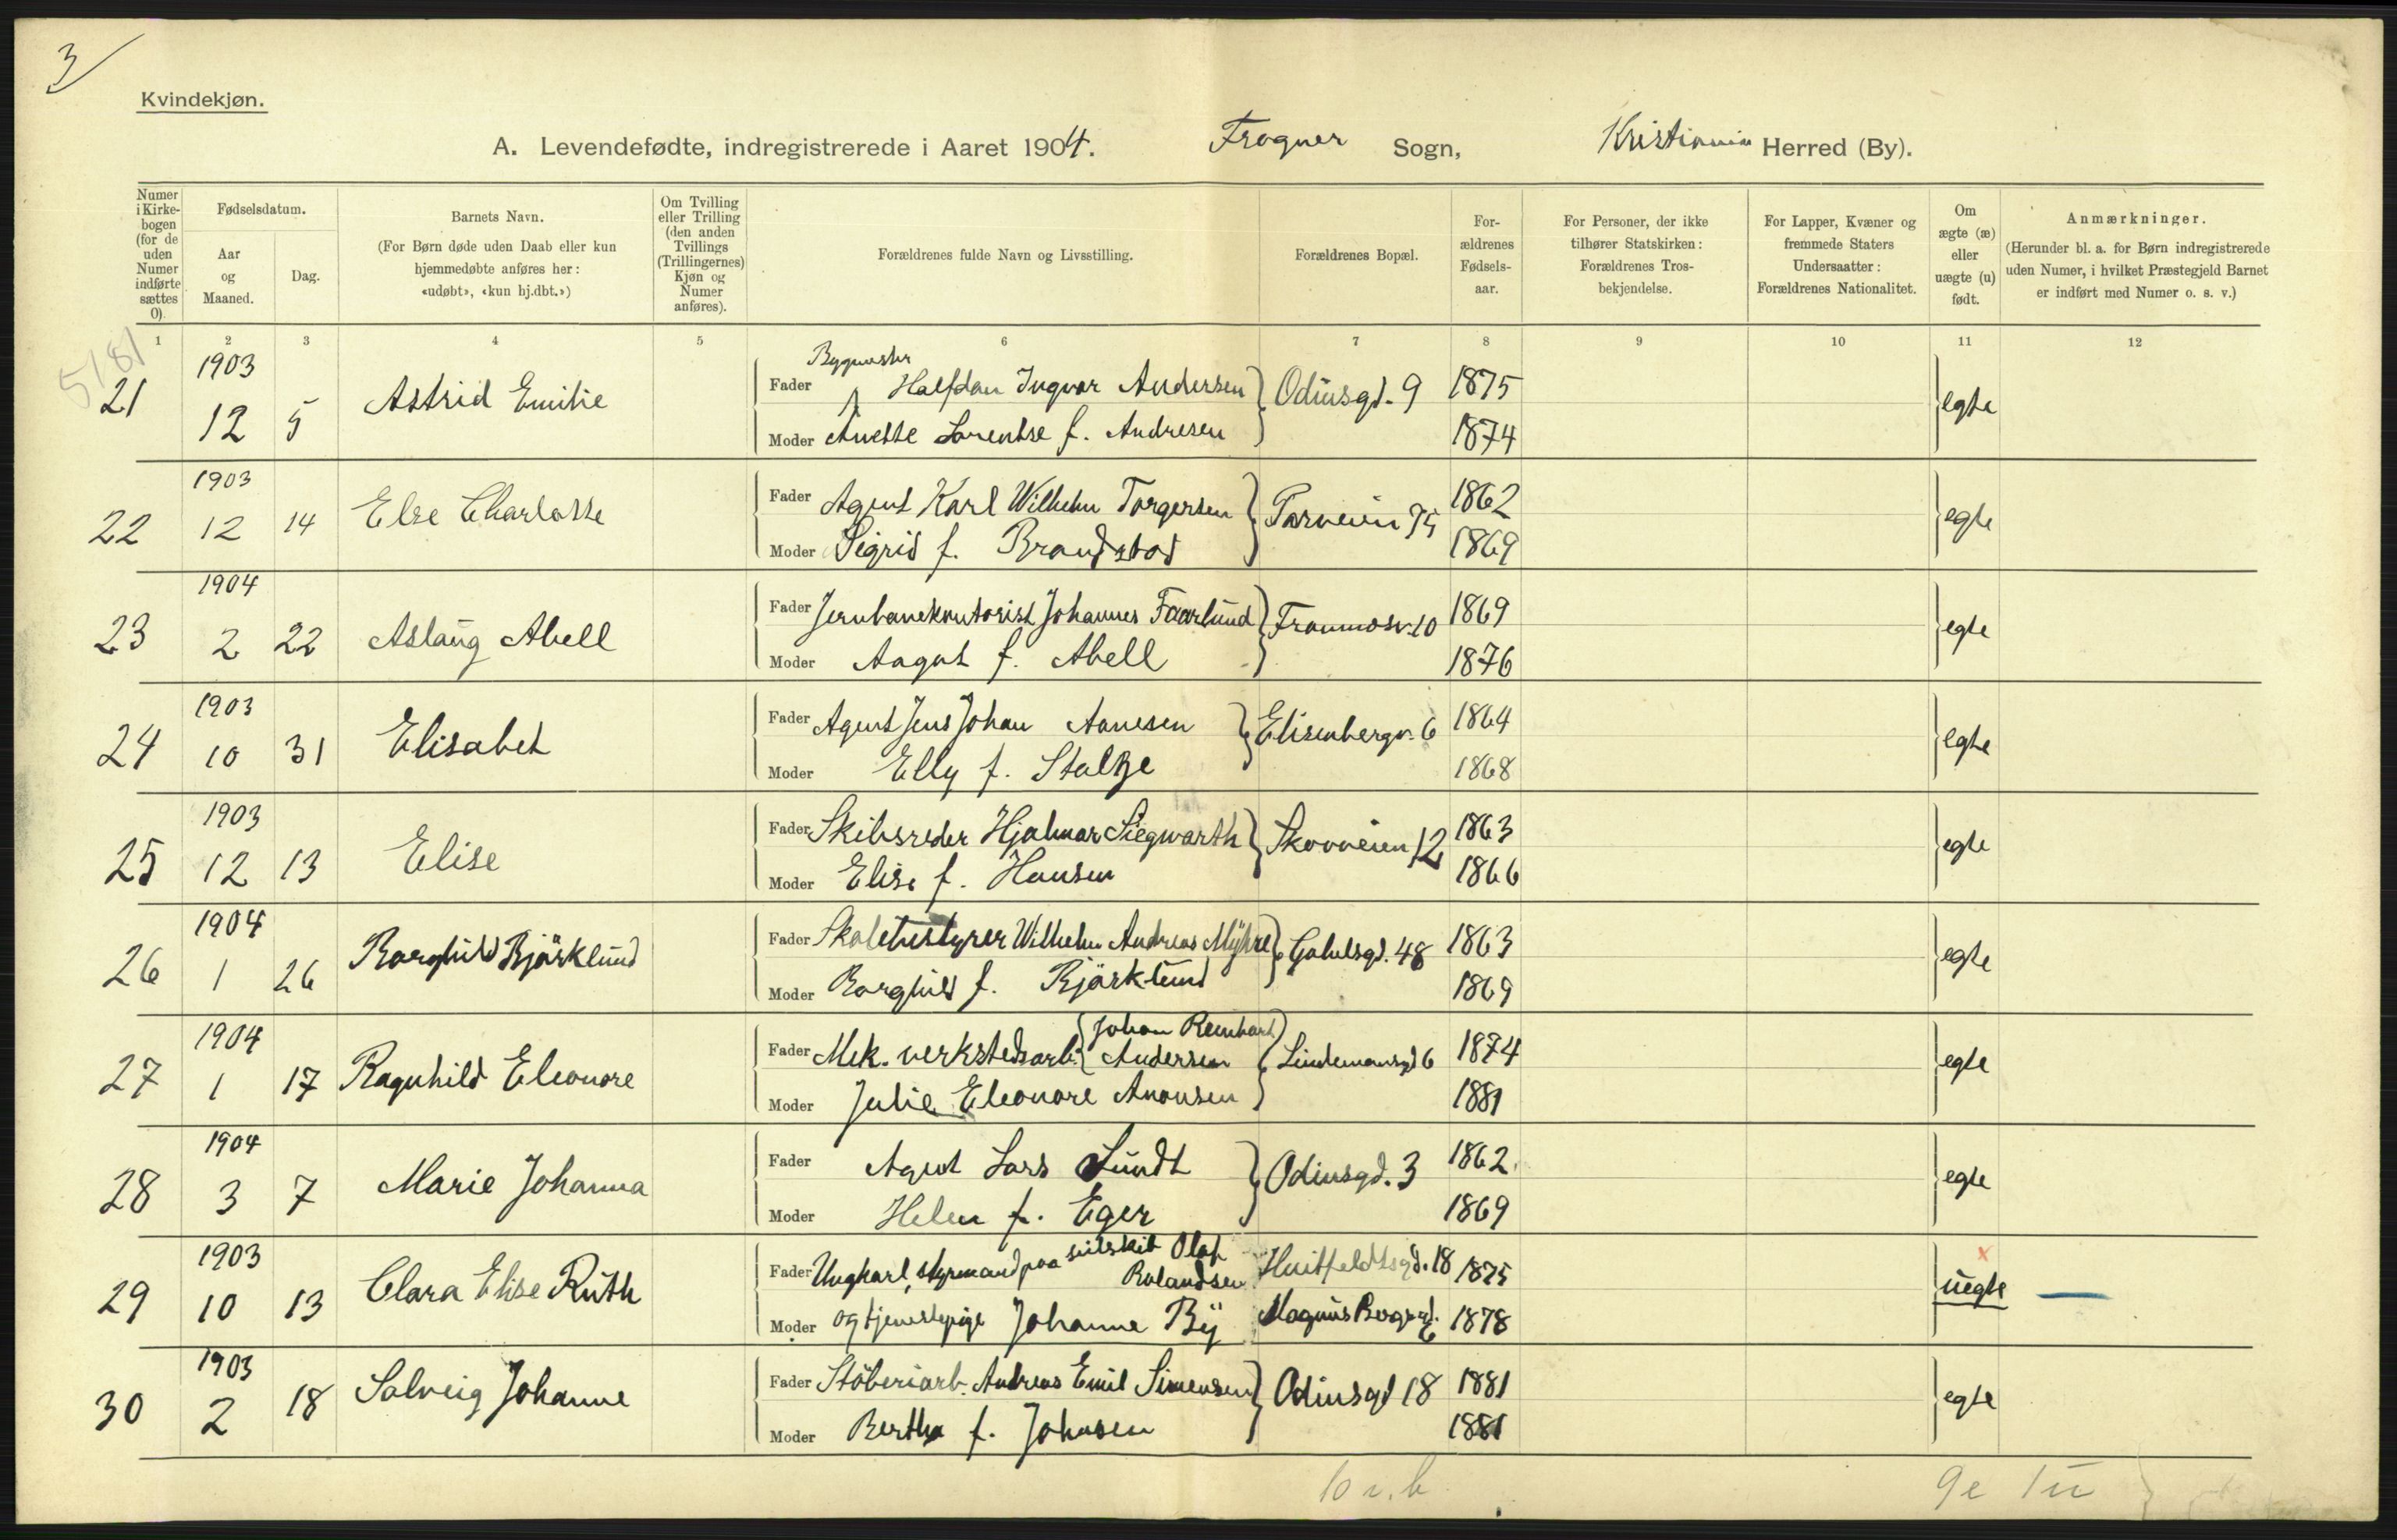 3
Kvindekjøn.
A. Levendefødte, indregistrerede i Aaret 1904. Frogner Sogn, Kristiania Herred (By).
Numer i Kirke- bogen (for de uden Numer indførte sættes 0).
Fødselsdatum.
Aar og Maaned.
Dag.
Barnets Navn.
(For Børn døde uden Daab eller kun hjemmedøbte anføres her: «udøbt», «kun hj.dbt.»)
Om Tvilling eller Trilling (den anden Tvillings (Trillingernes) Kjøn og Numer anføres).
Forældrenes fulde Navn og Livsstilling.
Forældrenes Bopæl.
For- ældrenes Fødsels- aar.
For Personer, der ikke tilhører Statskirken: Forældrenes Tros- bekjendelse.
For Lapper, Kvæner og fremmede Staters Undersaatter: Forældrenes Nationalitet.
Om ægte (æ) eller uægte (u) født.
Anmærkninger.
(Herunder bl. a. for Børn indregistrerede uden Numer, i hvilket Præstegjeld Barnet er indført med Numer o. s. v.)
1 2 3 4 5 6 7 8 9 10 11 12
5181
21 1903 12 5 Astrid Emilie
Fader Bygmester Halfdan Ingvar Andersen Odinsgd. 9 1875 egte
Moder Anette Lorentse f. Andresen 1874
22 1903 12 14 Else Charlotte
Fader Agent Karl Wilhelm Torgersen 1862 egte
Moder Sigrid f. Brandstod 1869
23 1904 2 22 Aslaug Abell
Fader Jernbanekontorist Johannes Faarlund Framnesv. 10 1869 egte
Moder Aagot f. Abell 1876
24 1903 10 31 Elisabet
Fader Agent Jens Johan Aanesen Elisenbergv. 6 1864 egte
Moder Elly f. 1868
25 1903 12 13 Elise
Fader Skibsreder Hjalmar Siegwarth Skovveien 12 1863 egte
Moder Elise f. Hansen 1866
26 1904 1 26 Borghild Bjørklund
Fader Skolebestyrer Wilhelm Andreas Myhre Gabelsgd. 48 1863 egte
Moder Borghild f. Bjørklund 1869
27 1904 1 17 Ragnhild Eleonore
Fader Mek. verkstedsarb. Johan Reinhart Andersen Lindemansgd 6 1874 egte
Moder Julie Eleonore Anonsen 1881
28 1904 3 7 Marie Johanna
Fader Agent Lars Lundt Odinsgd. 3 1862. egte
Moder Helen f. Eger 1869
29 1903 10 13 Clara Elise Ruth
Fader Ungkarl, styrmand paa seilskib Olaf Rolandsen Huitfeldtsgd. 18 1875 x uegte —
Moder og tjenestepige Johanne By Magnus Bergsgd. 6 1878
30 1903 2 18 Solveig Johanne
Fader Støberiarb. Andreas Emil Simensen Odinsgd 18 1881 egte
Moder Bertha f. Johnsen 1881
10 i. b.
9e 1u